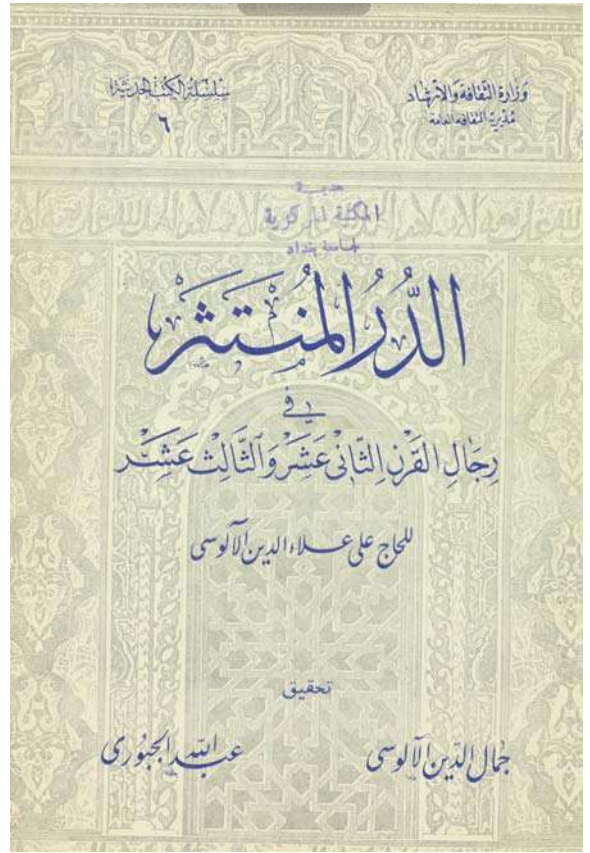 وزارة الثقافة والارشاد
مديرية الثقافة العامة
سلسلة الكتب الحديثة
٦
هدية
المكتبة المركزية
لجامعة بغداد
الدُّرُ المُنْتَثَر
في
رِجَالِ القَرْنِ الثَّانِي عَشَرْ وَالثَّالِثْ عَشَرْ
للحاج علي علاء الدين الآلوسي
تحقيق
جمال الدين الآلوسي
عبد الله الجبوري